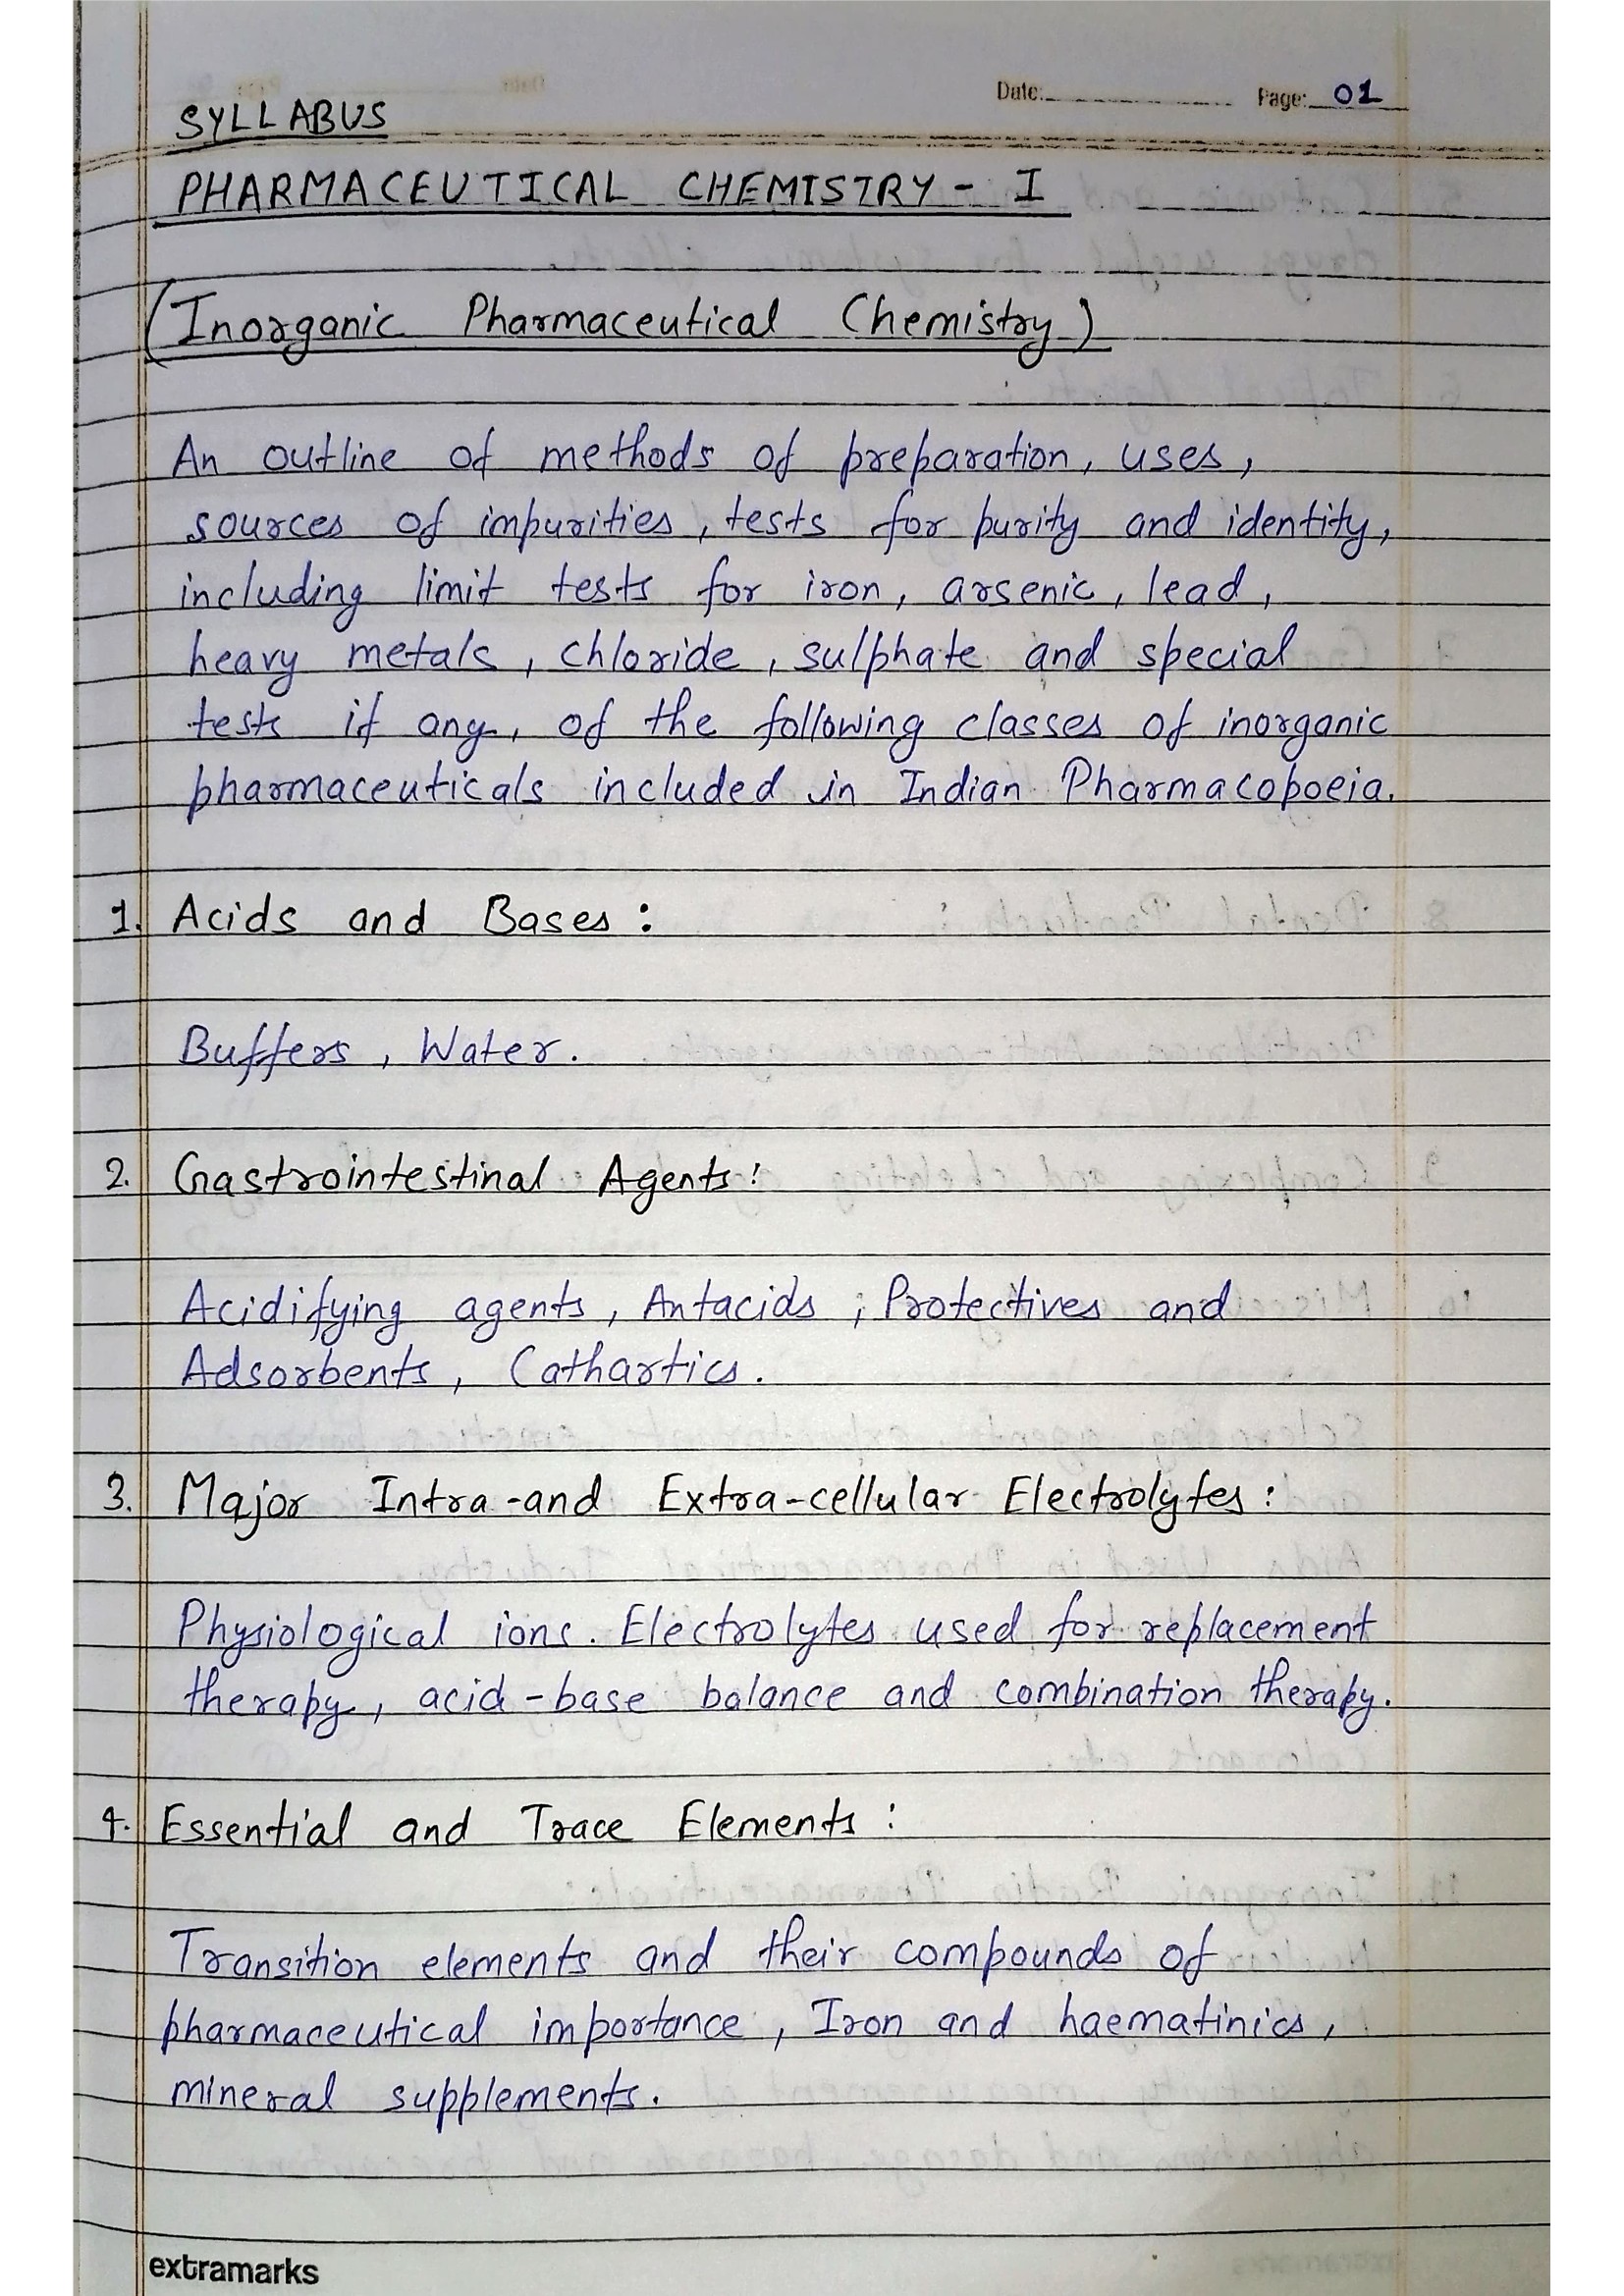 Date: Page: 01
SYLLABUS
PHARMACEUTICAL CHEMISTRY - I
(Inorganic Pharmaceutical Chemistry)
An outline of methods of preparation, uses,
sources of impurities, tests for purity and identity,
including limit tests for iron, arsenic, lead,
heavy metals, chloride, sulphate and special
tests if any, of the following classes of inorganic
pharmaceuticals included in Indian Pharmacopoeia.
1. Acids and Bases:
Buffers, Water.
2. Gastrointestinal Agents:
Acidifying agents, Antacids; Protectives and
Adsorbents, Cathartics.
3. Major Intra-and Extra-cellular Electrolytes:
Physiological ions. Electrolytes used for replacement
therapy, acid-base balance and combination therapy.
4. Essential and Trace Elements:
Transition elements and their compounds of
pharmaceutical importance, Iron and haematinics,
mineral supplements.
extramarks